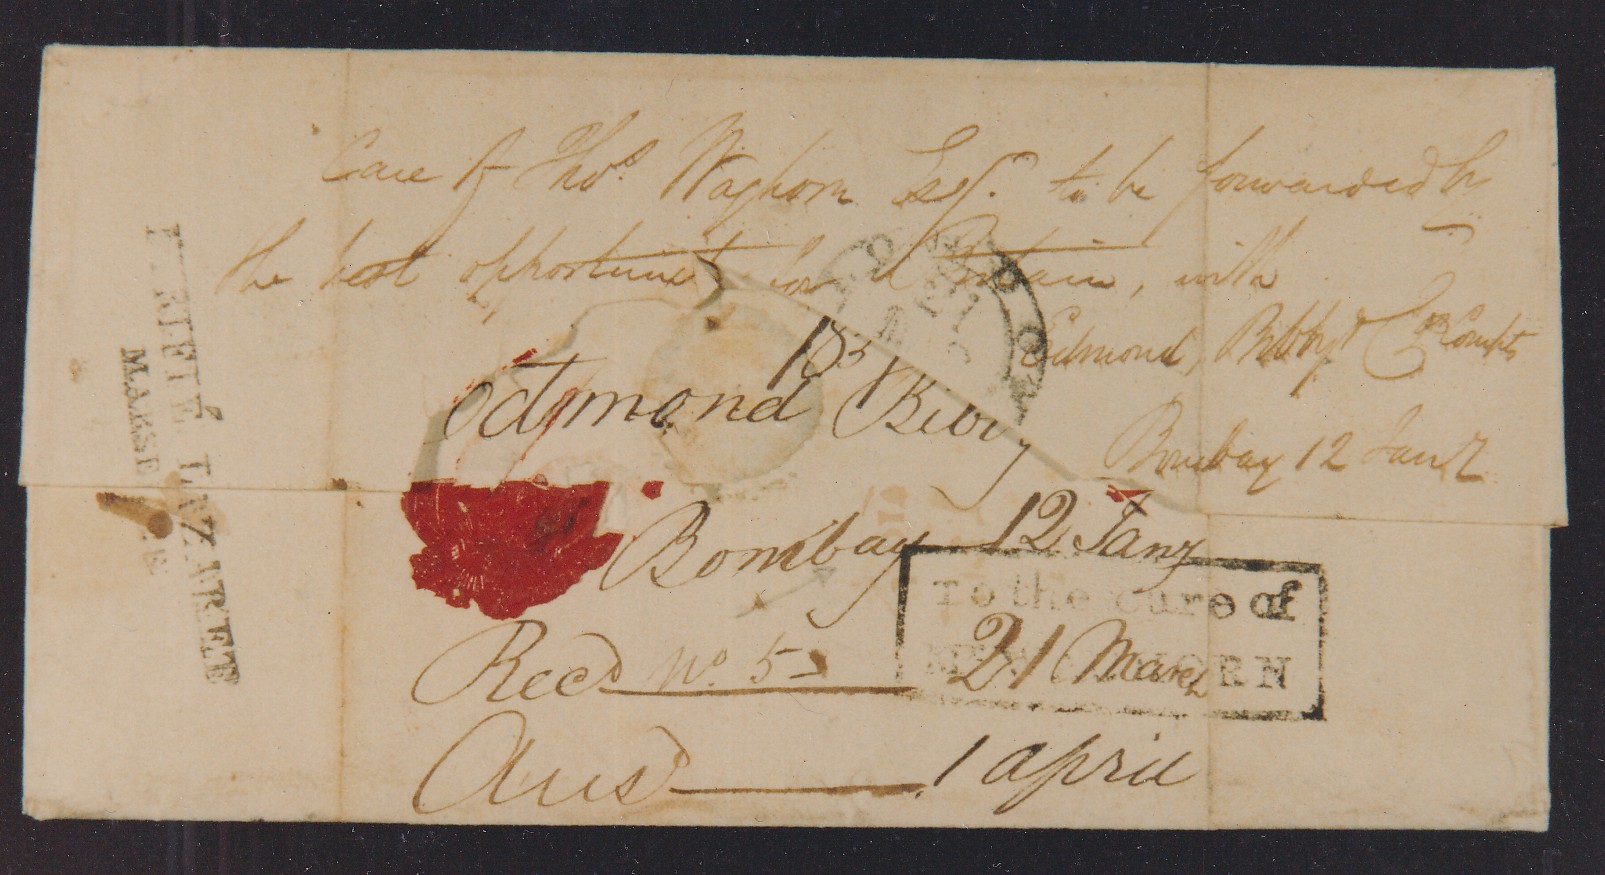 Care of Thos. Waghorn Esq. to be forwarded by
the best opportunity for Britain, with
Edmond, Bibby & Co Compts
Bombay 12 Jany
183
Edmond Bibby
Bombay 12 Jany
Recd No. 5 21 March
Ansd 1 April
To the care of
Mr WAGHORN
PURIFIÉ LAZARET
MARSEILLE